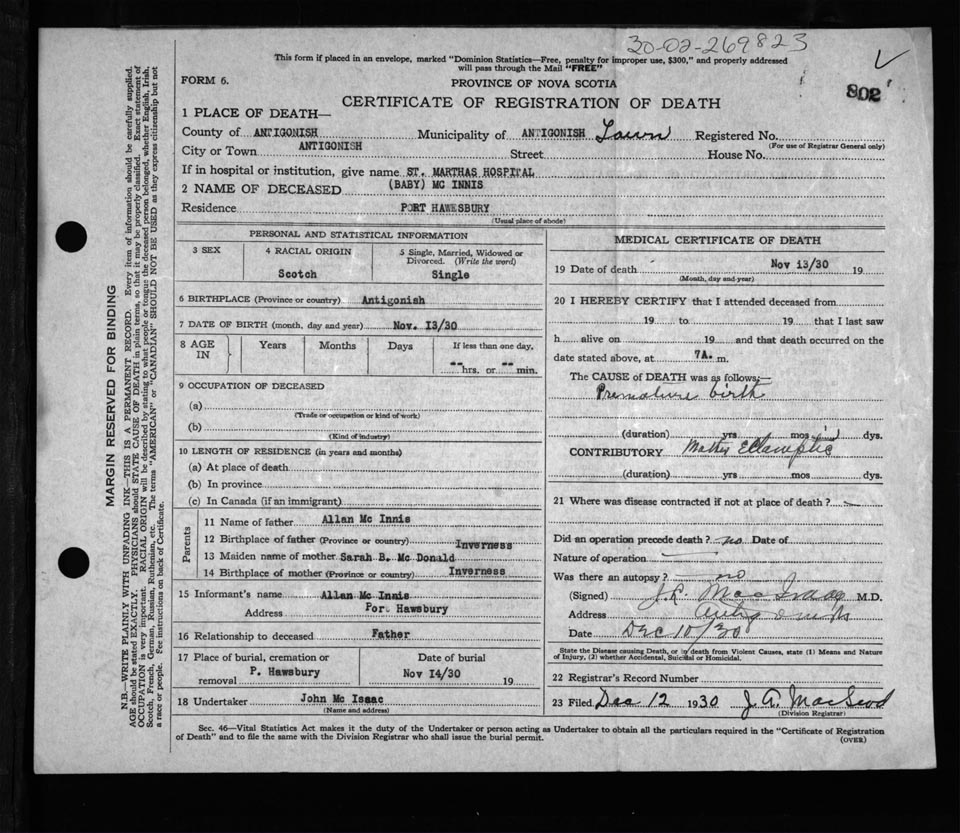 30-02-269823
This form if placed in an envelope, marked "Dominion Statistics—Free, penalty for improper use, $300," and properly addressed
will pass through the Mail "FREE"
FORM 6.
PROVINCE OF NOVA SCOTIA
802
CERTIFICATE OF REGISTRATION OF DEATH
1 PLACE OF DEATH—
County of ANTIGONISH Municipality of ANTIGONISH Town Registered No.
(For use of Registrar General only)
City or Town ANTIGONISH Street House No.
If in hospital or institution, give name ST. MARTHAS HOSPITAL
2 NAME OF DECEASED (BABY) MC INNIS
Residence PORT HAWESBURY
(Usual place of abode)
PERSONAL AND STATISTICAL INFORMATION
3 SEX
4 RACIAL ORIGIN
Scotch
5 Single, Married, Widowed or
Divorced. (Write the word)
Single
6 BIRTHPLACE (Province or country) Antigonish
7 DATE OF BIRTH (month, day and year) Nov. 13/30
8 AGE
IN
Years
Months
Days
If less than one day,
-- hrs. or -- min.
9 OCCUPATION OF DECEASED
(a)
(Trade or occupation or kind of work)
(b)
(Kind of industry)
10 LENGTH OF RESIDENCE (in years and months)
(a) At place of death
(b) In province
(c) In Canada (if an immigrant)
Parents
11 Name of father Allan Mc Innis
12 Birthplace of father (Province or country) Inverness
13 Maiden name of mother Sarah B. Mc Donald
14 Birthplace of mother (Province or country) Inverness
15 Informant's name Allan Mc Innis
Address Port Hawsbury
16 Relationship to deceased Father
17 Place of burial, cremation or
removal P. Hawsbury
Date of burial
Nov 14/30 19
18 Undertaker John Mc Isaac
(Name and address)
MEDICAL CERTIFICATE OF DEATH
19 Date of death Nov 13/30 19
(Month, day and year)
20 I HEREBY CERTIFY that I attended deceased from
19 to 19 that I last saw
h alive on 19 and that death occurred on the
date stated above, at 7A. m.
The CAUSE of DEATH was as follows:—
Premature birth
(duration) yrs mos dys.
CONTRIBUTORY Mother Eclamptic
(duration) yrs mos dys.
21 Where was disease contracted if not at place of death?
Did an operation precede death? no Date of
Nature of operation
Was there an autopsy? no
(Signed) M.D.
Address Antigonish
Date Dec 10/30
State the Disease causing Death, or in death from Violent Causes, state (1) Means and Nature
of Injury, (2) whether Accidental, Suicidal or Homicidal.
22 Registrar's Record Number
23 Filed Dec 12 1930 J. A. MacLeod
(Division Registrar)
Sec. 46—Vital Statistics Act makes it the duty of the Undertaker or person acting as Undertaker to obtain all the particulars required in the "Certificate of Registration
of Death" and to file the same with the Division Registrar who shall issue the burial permit.
(OVER)
MARGIN RESERVED FOR BINDING
N.B—WRITE PLAINLY WITH UNFADING INK—THIS IS A PERMANENT RECORD. Every item of information should be carefully supplied.
AGE should be stated EXACTLY. PHYSICIANS should STATE CAUSE OF DEATH in plain terms, so that it may be properly classified. Exact statement of
OCCUPATION is very important. RACIAL ORIGIN will be described by stating to what people or tongue the deceased person belonged, whether English, Irish,
Scotch, French, German, Russian, Ruthenian, etc. The terms "AMERICAN" or "CANADIAN" SHOULD NOT BE USED as they express citizenship but not
a race or people. See instructions on back of Certificate.